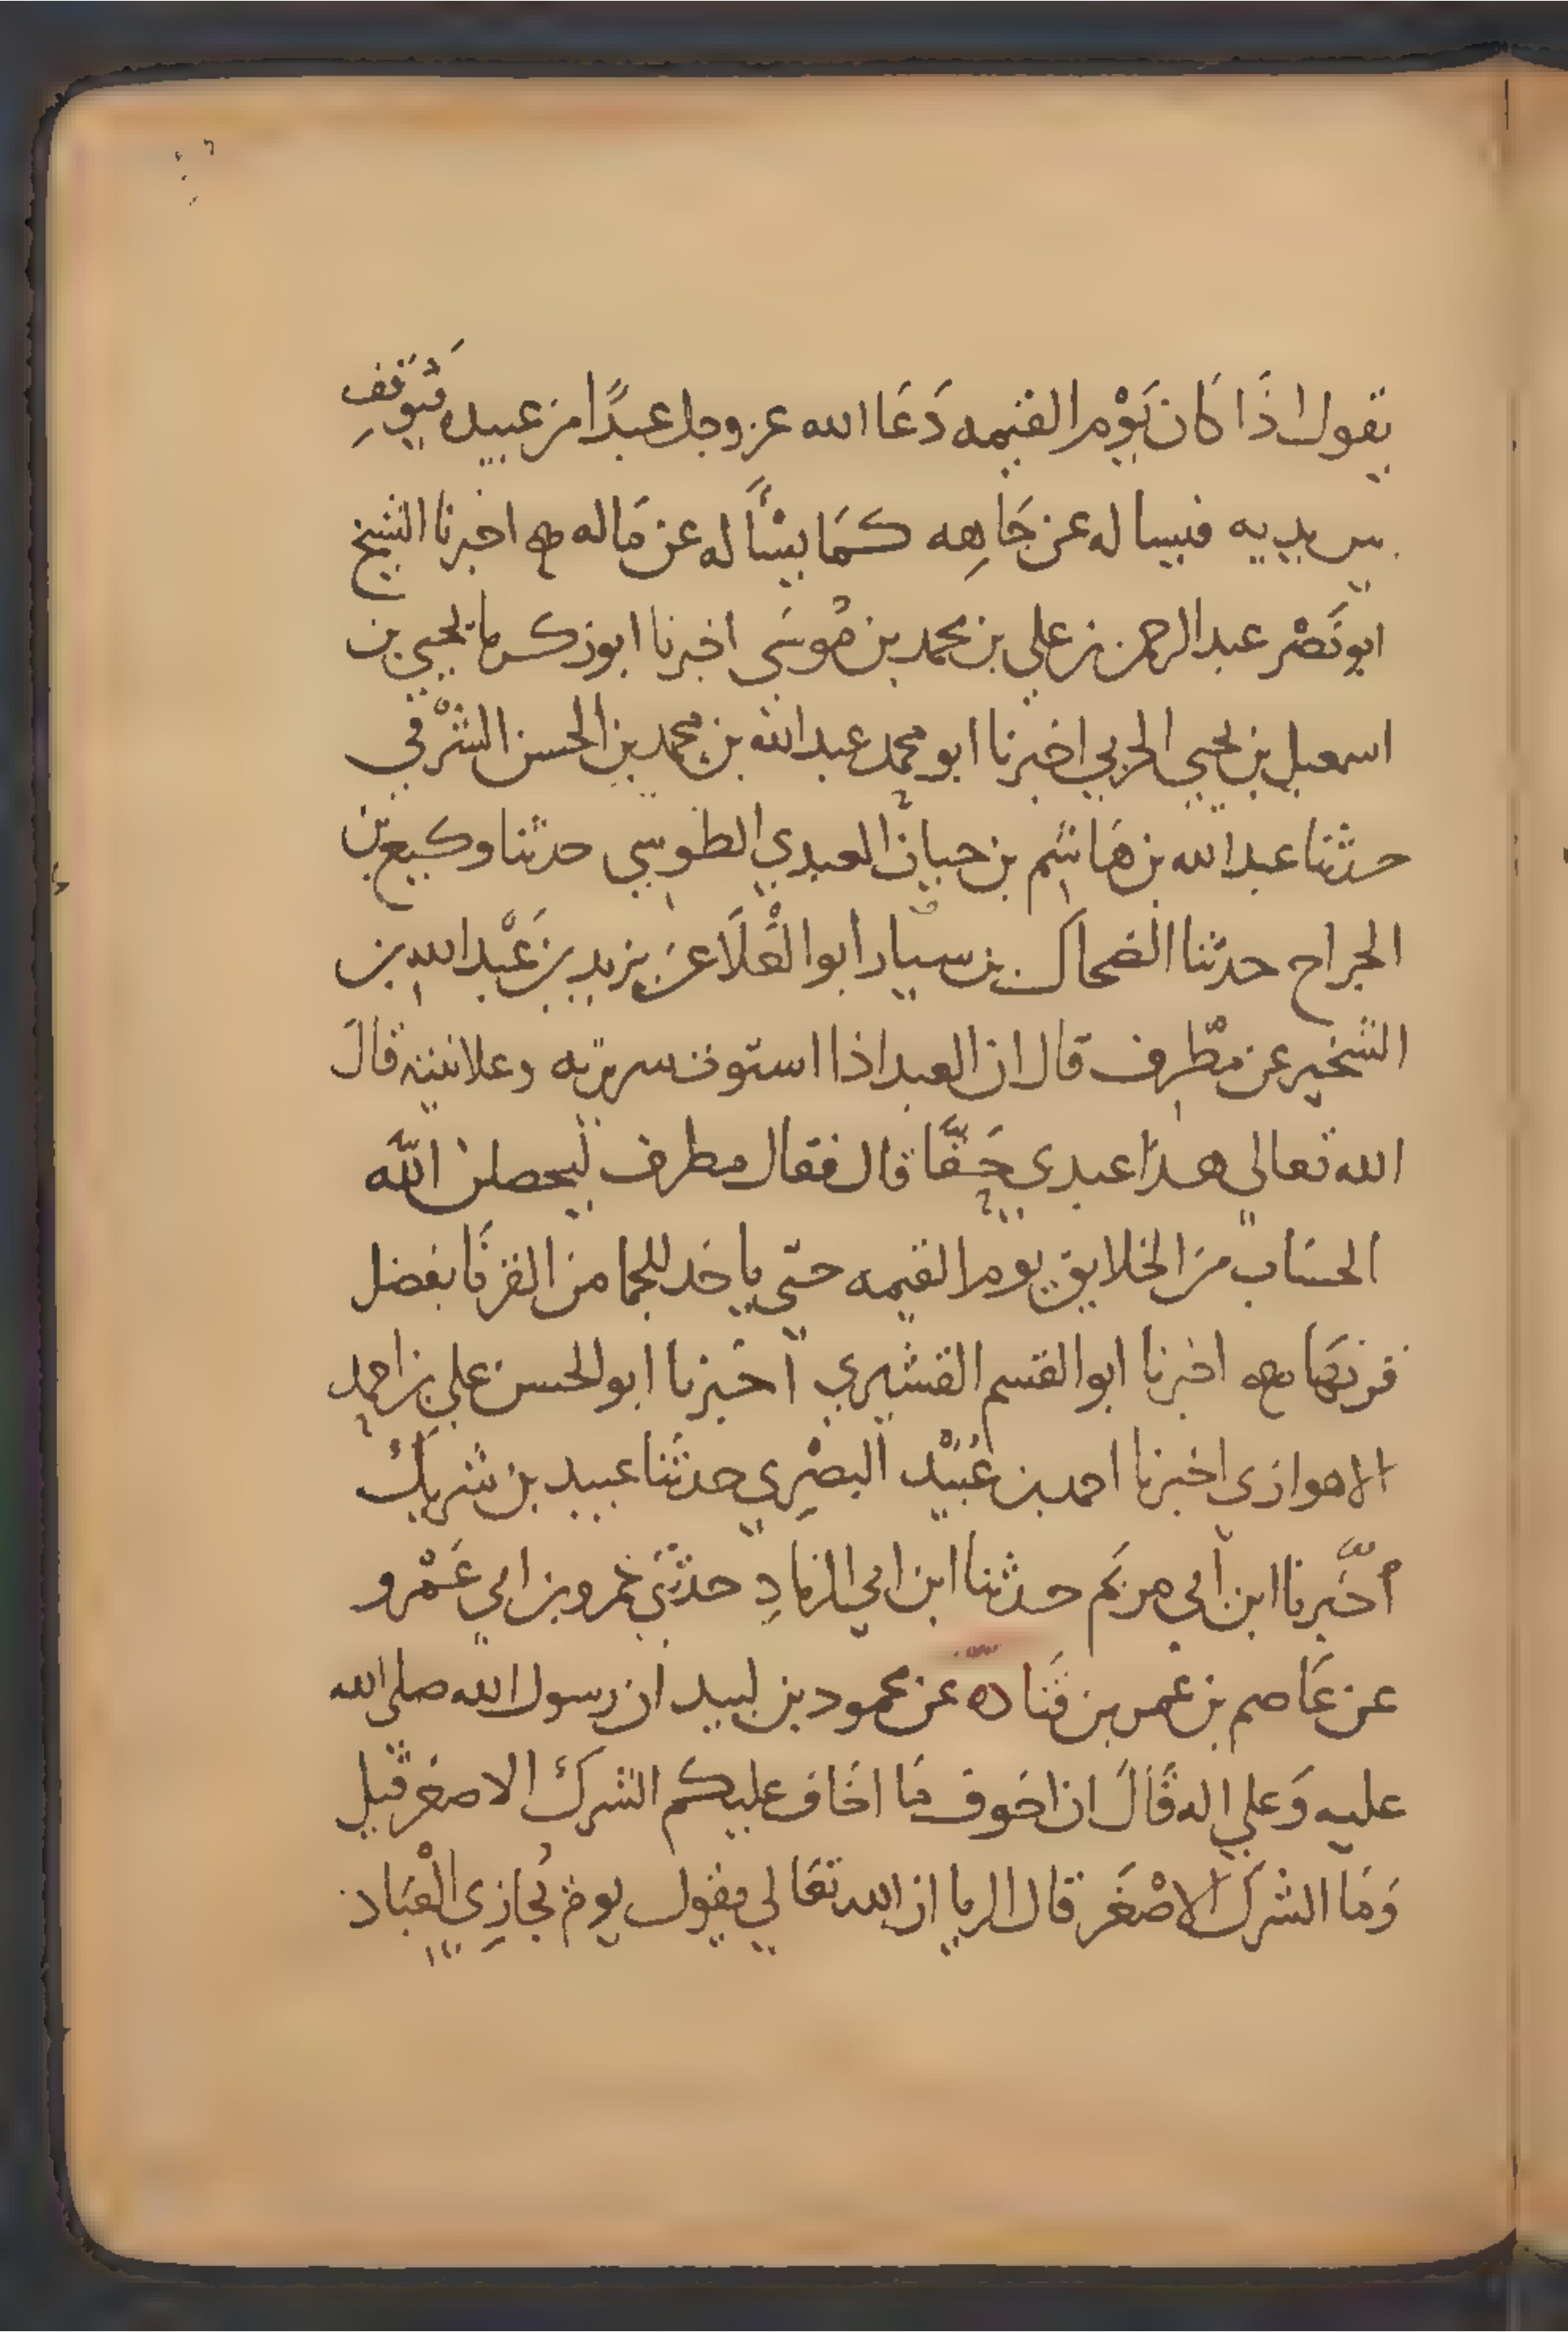 يقول اذَا كَان يَوْم القيمه دَعَا الله عز وجل عبدًا من عبيده فيُوقَفِ
بين يديه فيساله عن جَاهِه كمَا يسْأَله عن مَاله ه اخبرنا الشيخ
ابو نَصْر عبد الرحمن بن علي بن محمد بن مُوسَى اخبرنا ابو زكريا يحيى بن
اسمعيل بن يحيي الحربي اخبرنا ابو محمد عبد الله بن محمد بن الحسن الشَّرْقي
حدثنا عبد الله بن هَاشم بن حيان العبدي الطوسي حدثنا وكيع بن
الجراح حدثنا الضحاك بن يسار ابو العْلَا عن يزيد بن عَبْد الله بن
الشخير عن مطرف قال ان العبد اذا استوت سريرته وعلانيته قالَ
الله تعالي هذَا عبدي حَقًّا قال فقال مطرف ليحصلن الله
الحسَاب من الخلايق يوم القيمه حتى ياخذ للجما من القرنَا بفضل
قرنهَا ه اخبرنا ابو القسم القشيري أخبرنا ابو الحسن علي بن احمد
الاهوازي اخبرنا احمد بن عُبَيْد البصْرِي حدثَنا عبيد بن شريك
أخبرنا ابن أبي مريَم حدثنا ابن ابي الزنادِ حدثنَي عَمرو بن ابي عَمْرو
عن عَاصم بن عمر بن قتَاده عن محمود بن لبيد ان رسول الله صلى الله
عليه وَعلي اله قَالَ ان اخوف مَا اخَاف عليكم الشرك الاصغر قيل
وَمَا الشرك الاصْغَر قال الريا ان الله تعَالي يقول يوم يُجازِي الْعبَاد